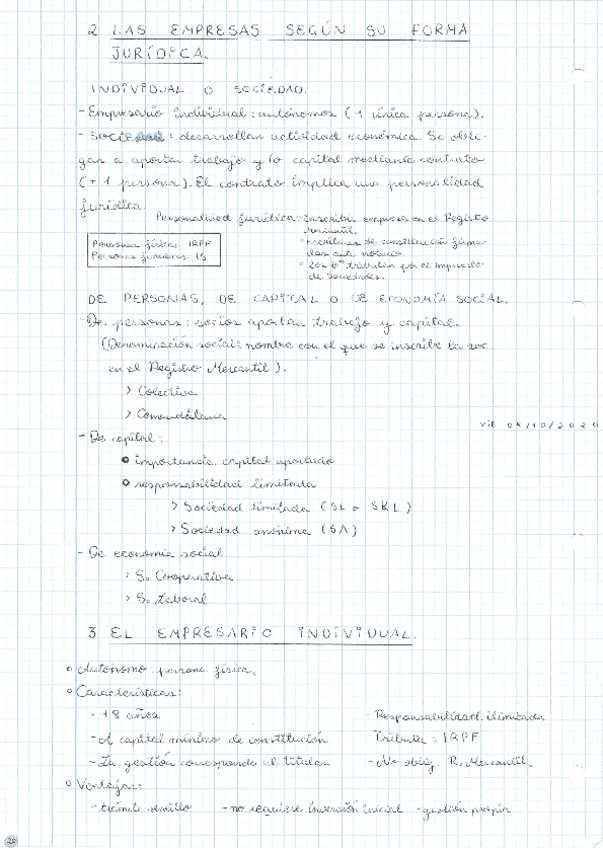 2 LAS EMPRESAS SEGÚN SU FORMA
JURÍDICA.
INDIVIDUAL O SOCIEDAD.
- Empresario individual: autónomos (1 única persona).
- Sociedad: desarrollan actividad económica. Se obli-
gan a aportar trabajo y/o capital mediante contrato
(+ 1 persona). El contrato implica una personalidad
jurídica.
Personalidad jurídica: Inscribir empresa en el Registro
Mercantil.
Personas físicas: IRPF
Personas jurídicas: IS
° escrituras de constitución firma-
das ante notario.
° Los bº tributan por el Impuesto
de Sociedades.
DE PERSONAS, DE CAPITAL O DE ECONOMÍA SOCIAL.
- De personas: socios aportan trabajo y capital.
(Denominación social: nombre con el que se inscribe la soc
en el Registro Mercantil).
> Colectiva
> Comanditaria
- De capital:
o importancia capital aportado
o responsabilidad limitada
> Sociedad limitada (SL o SRL)
> Sociedad anónima (SA)
- De economía social
> S. Cooperativa
> S. Laboral
3 EL EMPRESARIO INDIVIDUAL.
o Autónomo: persona física.
o Características:
- +8 años
- Responsabilidad ilimitada
- capital mínimo de constitución
- Tributa: IRPF
- La gestión corresponde al titular
- No oblig. R. Mercantil.
o Ventajas:
- trámite sencillo - no requiere inversión inicial - gestión propia